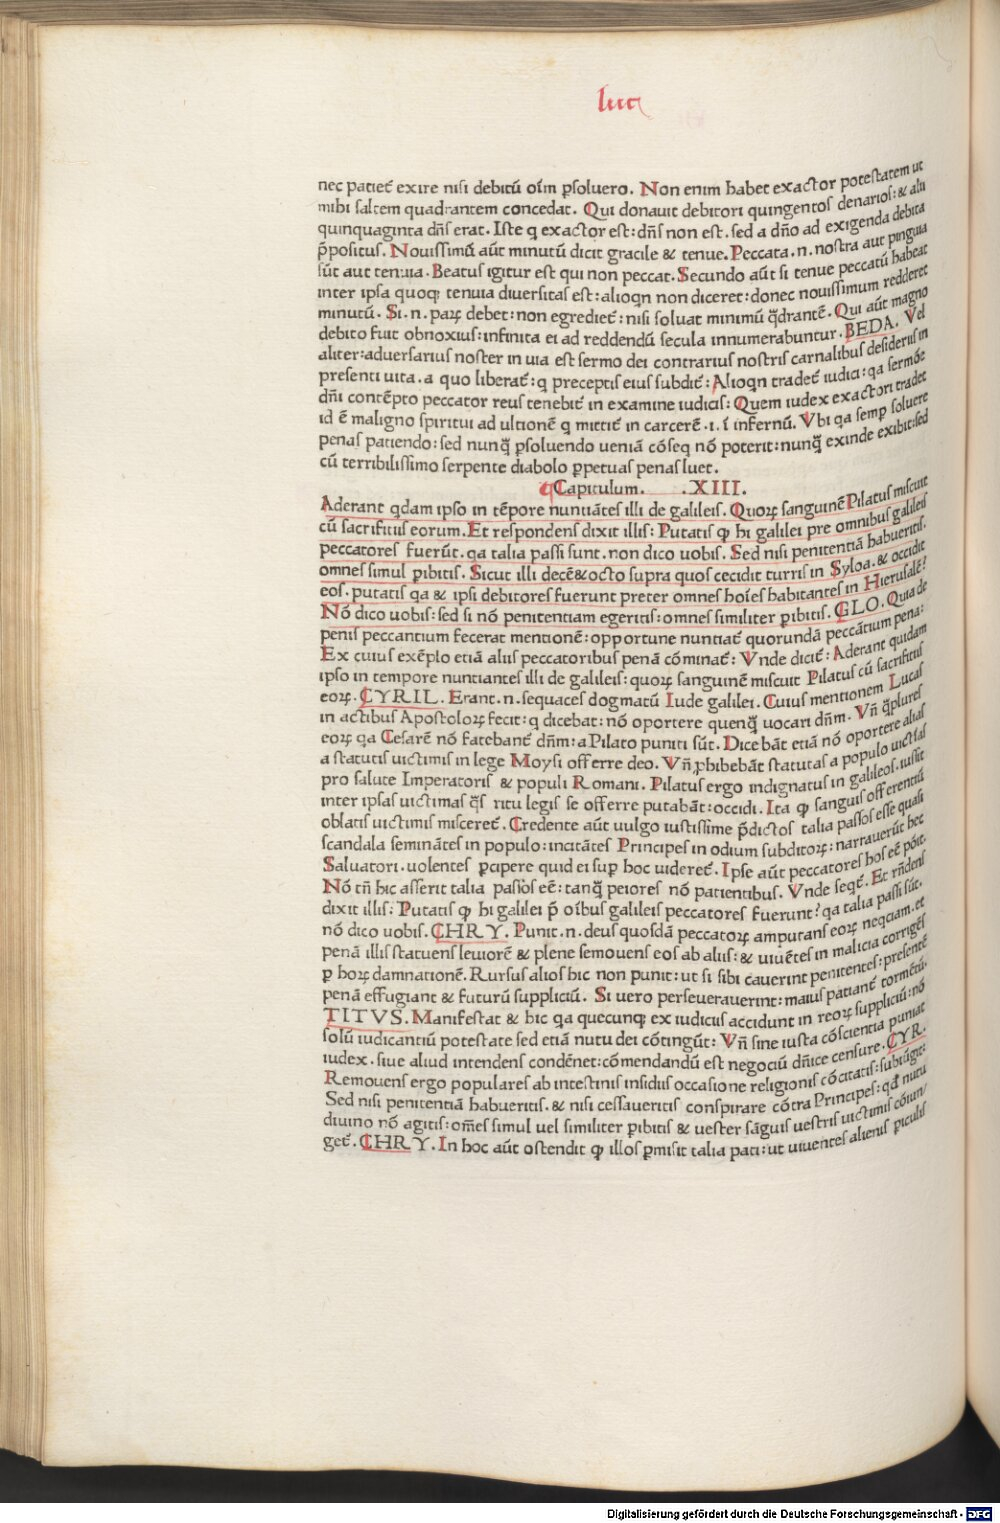 luc
nec patiet̃ exire nisi debitũ oĩm ꝑsoluero. Non enim habet exactor potestatem ut
mihi saltem quadrantem concedat. Qui donauit debitori quingentos denarios: & alii
quinquaginta dñs erat. Iste q exactor est: dñs non est. sed a dño ad exigenda debita
p̃positus. Nouissimũ aũt minutũ dicit gracile & tenue. Peccata .n. nostra aut pinguia
sũt aut tenuia. Beatus igitur est qui non peccat. Secundo aũt si tenue peccatũ habeat
inter ipsa quoq; tenuia diuersitas est: alioqn non diceret: donec nouissimum redderet
minutũ. Si .n. parꝝ debet: non egrediet̃: nisi soluat minimũ q̃drantẽ. Qui aũt magno
debito fuit obnoxius: infinita ei ad reddendũ secula innumerabuntur. BEDA. Vel
aliter: aduersarius noster in uia est sermo dei contrarius nostris carnalibus desideriis in
presenti uita. a quo liberat̃: q preceptis eius subdit̃: Alioqn tradet̃ iudici: qa sermõe
dñi contẽpto peccator reus tenebit̃ in examine iudicis: Quem iudex exactori tradet
id ẽ maligno spiritui ad ultionẽ q mittit̃ in carcerẽ .i. ĩ infernũ. Vbi qa semp soluere
penas patiendo: sed nunq̃ ꝑsoluendo ueniã cõseq nõ poterit: nunq̃ exinde exibit: sed
cũ terribilissimo serpente diabolo ꝑpetuas penas luet.
Capitulum. .XIII.
Aderant qdam ipso in tẽpore nuntiãtes illi de galileis. Quorꝝ sanguinẽ Pilatus miscuit
cũ sacrificiis eorum. Et respondens dixit illis: Putatis ꝙ hi galilei pre omnibus galileis
peccatores fuerũt. qa talia passi sunt. non dico uobis. Sed nisi penitentiã habueritis.
omnes simul ꝑibitis. Sicut illi decẽ&octo supra quos cecidit turris in Syloa. & occidit
eos. putatis qa & ipsi debitores fuerunt preter omnes hoĩes habitantes in Hierusalẽ?
Nõ dico uobis: sed si nõ penitentiam egeritis: omnes similiter ꝑibitis. GLO. Quia de
penis peccantium fecerat mentionẽ: opportune nuntiat̃ quorundã peccãtium pena:
Ex cuius exẽplo etiã aliis peccatoribus penã cõminat̃: Vnde dicit̃: Aderant quidam
ipso in tempore nuntiantes illi de galileis: quorꝝ sanguinẽ miscuit Pilatus cũ sacrificiis
eorꝝ. CYRIL. Erant .n. sequaces dogmatũ Iude galilei. Cuius mentionem Lucas
in actibus Apostolorꝝ fecit: q dicebat: nõ oportere quenq̃ uocari dñm. Vñ q̃plures
eorꝝ qa Cesarẽ nõ fatebant̃ dñm: a Pilato puniti sũt. Dicebãt etiã nõ oportere alias
a statutis uictimis in lege Moysi offerre deo. Vñ ꝑhibebãt statutas a populo uictĩas
pro salute Imperatoris & populi Romani. Pilatus ergo indignatus in galileos. iussit
inter ipsas uictimas q̃s ritu legis se offerre putabãt: occidi. Ita ꝙ sanguis offerentiũ
oblatis uictimis misceret̃. Credente aũt uulgo iustissime p̃dictos talia passos esse quasi
scandala seminãtes in populo: incitãtes Principes in odium subditorꝝ: narrauerũt hec
Saluatori. uolentes ꝑcipere quid ei suꝑ hoc uideret̃. Ipse aũt peccatores hos eẽ põit.
Nõ tñ hic asserit talia passos eẽ: tanq̃ peiores nõ patientibus. Vnde seqt̃. Et rñdens
dixit illis: Putatis ꝙ hi galilei p̃ oĩbus galileis peccatores fuerunt? qa talia passi sũt.
nõ dico uobis. CHRY. Punit .n. deus quosdã peccatorꝝ amputans eorꝝ neqciam. et
penã illis statuens leuiorẽ & plene semouens eos ab aliis: & uiuẽtes in malicia corrigẽs
ꝑ horꝝ damnationẽ. Rursus alios hic non punit: ut si sibi cauerint penitentes: presentẽ
penã effugiant & futurũ suppliciũ. Si uero perseuerauerint: maius patiant̃ tormẽtũ.
TITVS. Manifestat & hic qa quecunq; ex iudiciis accidunt in reorꝝ suppliciũ: nõ
solũ iudicantiũ potestate sed etiã nutu dei cõtingũt: Vñ sine iusta cõscientia puniat
iudex. siue aliud intendens condẽnet: cõmendandũ est negociũ dñice censure. CYR.
Remouens ergo populares ab intestinis insidiis occasione religionis cõcitatis: subiũgit:
Sed nisi penitentiã habueritis. & nisi cessaueritis conspirare cõtra Principes: qđ nutu
diuino nõ agitis: oms̃ simul uel similiter ꝑibitis & uester sãguis uestris uictimis cõiun/
get̃. CHRY. In hoc aũt ostendit ꝙ illos ꝑmisit talia pati: ut uiuentes alienis ꝑiculis
Digitalisierung gefördert durch die Deutsche Forschungsgemeinschaft - DFG